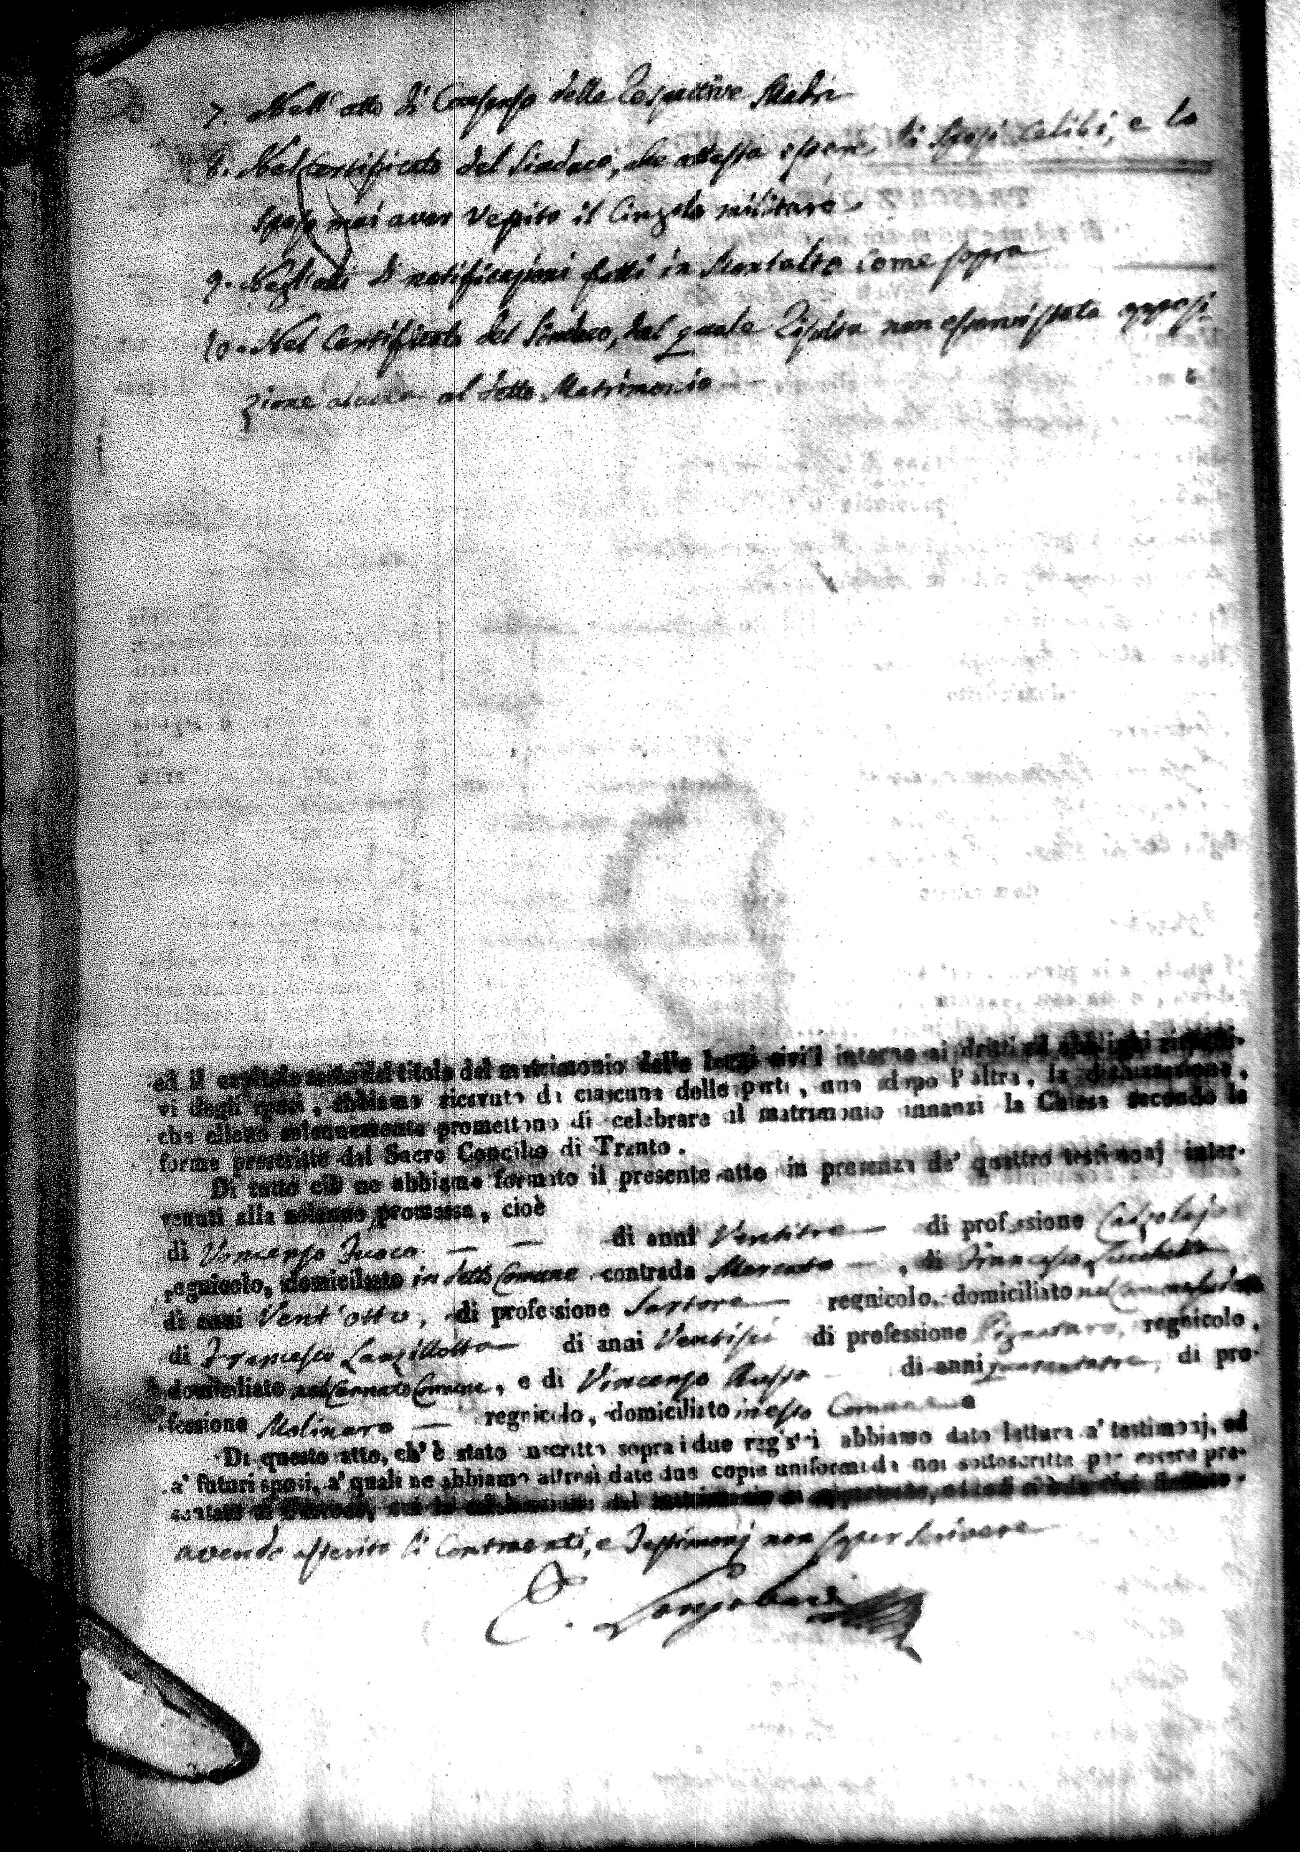 7. Nell'atto di Consenso delle respettive Madri
8. Nel certificato del Sindaco, che attesta essere li sposi celibi, e lo
sposo mai aver vestito il Cingolo militare
9. Negli atti di notificazioni fatti in Montalto come sopra
10. Nel Certificato del Sindaco, dal quale risulta non esservi stata opposi
zione alcuna al detto Matrimonio
ed il capitolo sesto del titolo del matrimonio delle leggi civili intorno ai dritti ed obblighi rispetti-
vi degli sposi, abbiamo ricevuto da ciascuna delle parti, una adopo l'altra, la dichiarazione,
che elleno solennemente promettono di celebrare il matrimonio innanzi la Chiesa secondo le
forme prescritte dal Sacro Concilio di Trento.
Di tutto ciò ne abbiamo formato il presente atto in presenza de' quattro testimonj inter-
venuti alla solenne promessa, cioè
di Vincenzo Fuoco di anni Ventitre di professione Calzolajo
regnicolo, domiciliato in detto Comune contrada Mercato, di Francesco
di anni Vent'otto, di professione Sartore regnicolo, domiciliato
di Francesco Lanzillotta di anni Ventisei di professione Pignataro, regnicolo,
domiciliato nel Cennato Comune, e di Vincenzo Russo di anni quarantatre, di pro-
fessione Molinaro regnicolo, domiciliato in esso Comune
Di questo atto, ch'è stato inscritto sopra i due registri abbiamo dato lettura a' testimonj, ed
a' futuri sposi, a' quali ne abbiamo altresì date due copie uniformi da noi sottoscritte per essere pre-
sentate al Parroco, cui la celebrazione del matrimonio si appartiene,
avendo asserito li Contraenti, e Testimonj non saper scrivere